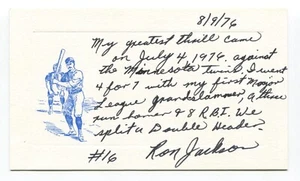 8/9/76
My greatest thrill came
on July 4, 1976, against
the Minnesota twins. I went
4 for 7 with my first major
League grandslammer, a three
run homer & 8 R.B.I. We
split a Double Header.
#16 Ron Jackson